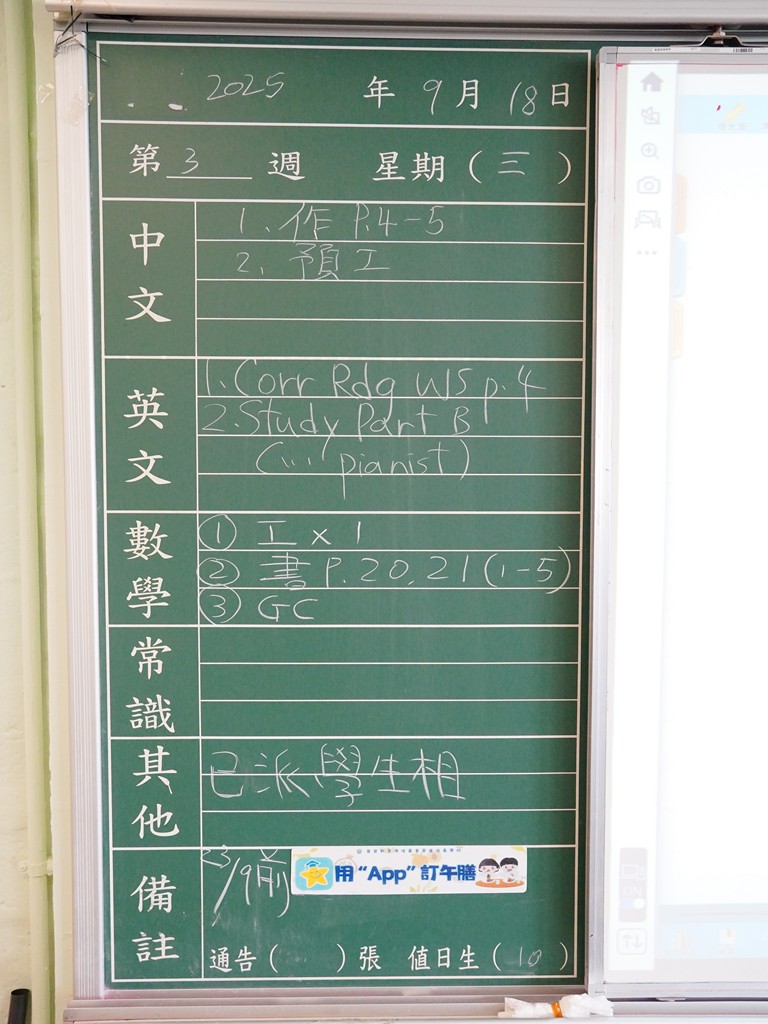 2025 年 9 月 18 日
第 3 週 星期 ( 三 )
中文
1. 作 P.4-5
2. 預工
英文
1. Corr Rdg WS p.4
2. Study Part B
(... pianist)
數學
① 工 x 1
② 書 P.20,21 (1-5)
③ GC
常識
其他
已派學生相
備註
23/9前
用 “App” 訂午膳
通告 ( ) 張 值日生 ( 10 )